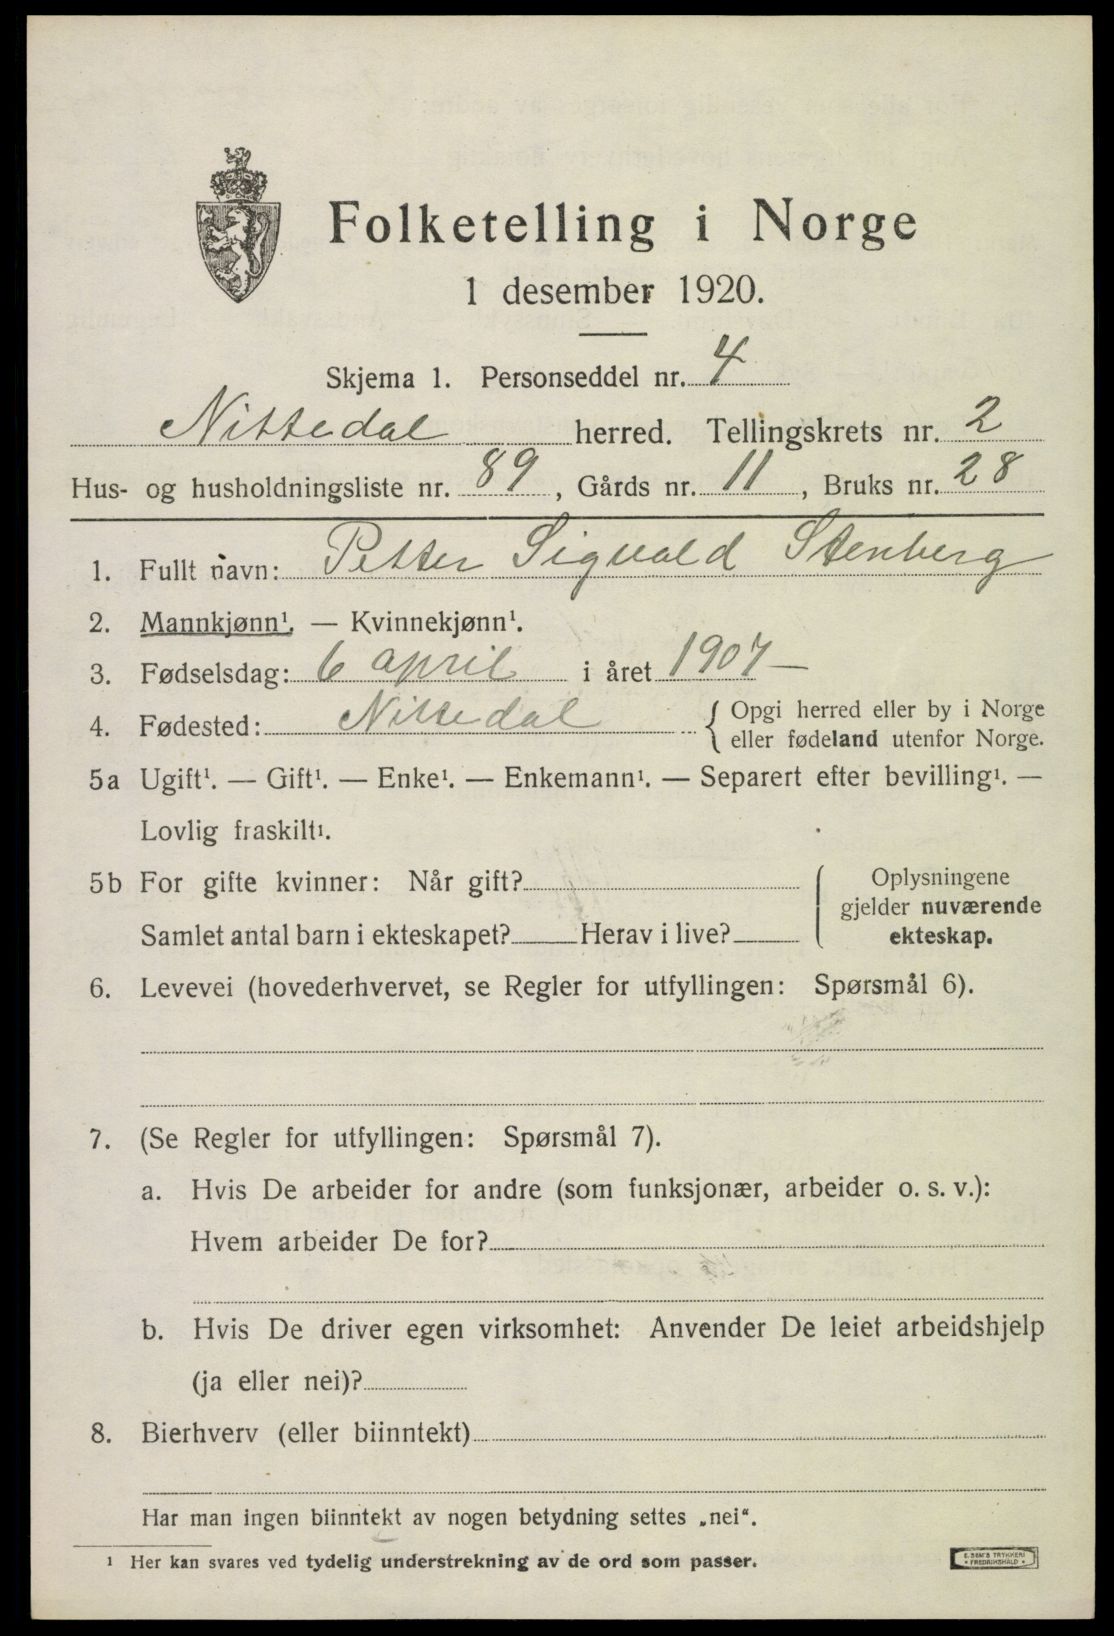 Folketelling i Norge
1 desember 1920.
Skjema 1. Personseddel nr. 4
Nittedal herred. Tellingskrets nr. 2
Hus- og husholdningsliste nr. 89, Gårds nr. 11, Bruks nr. 28
1. Fullt navn: Petter Sigvald Stenberg
2. Mannkjønn¹. — Kvinnekjønn¹.
3. Fødselsdag: 6 april i året 1907 —
4. Fødested: Nittedal { Opgi herred eller by i Norge
eller fødeland utenfor Norge.
5a Ugift¹. — Gift¹. — Enke¹. — Enkemann¹. — Separert efter bevilling¹. —
Lovlig fraskilt¹.
5b For gifte kvinner: Når gift?
Samlet antal barn i ekteskapet? Herav i live?
Oplysningene
gjelder nuværende
ekteskap.
6. Levevei (hovederhvervet, se Regler for utfyllingen: Spørsmål 6).
7. (Se Regler for utfyllingen: Spørsmål 7).
a. Hvis De arbeider for andre (som funksjonær, arbeider o. s. v.):
Hvem arbeider De for?
b. Hvis De driver egen virksomhet: Anvender De leiet arbeidshjelp
(ja eller nei)?
8. Bierhverv (eller biinntekt)
Har man ingen biinntekt av nogen betydning settes „nei“.
¹ Her kan svares ved tydelig understrekning av de ord som passer.
E. SEM'S TRYKKERI
• FREDRIKSHALD •